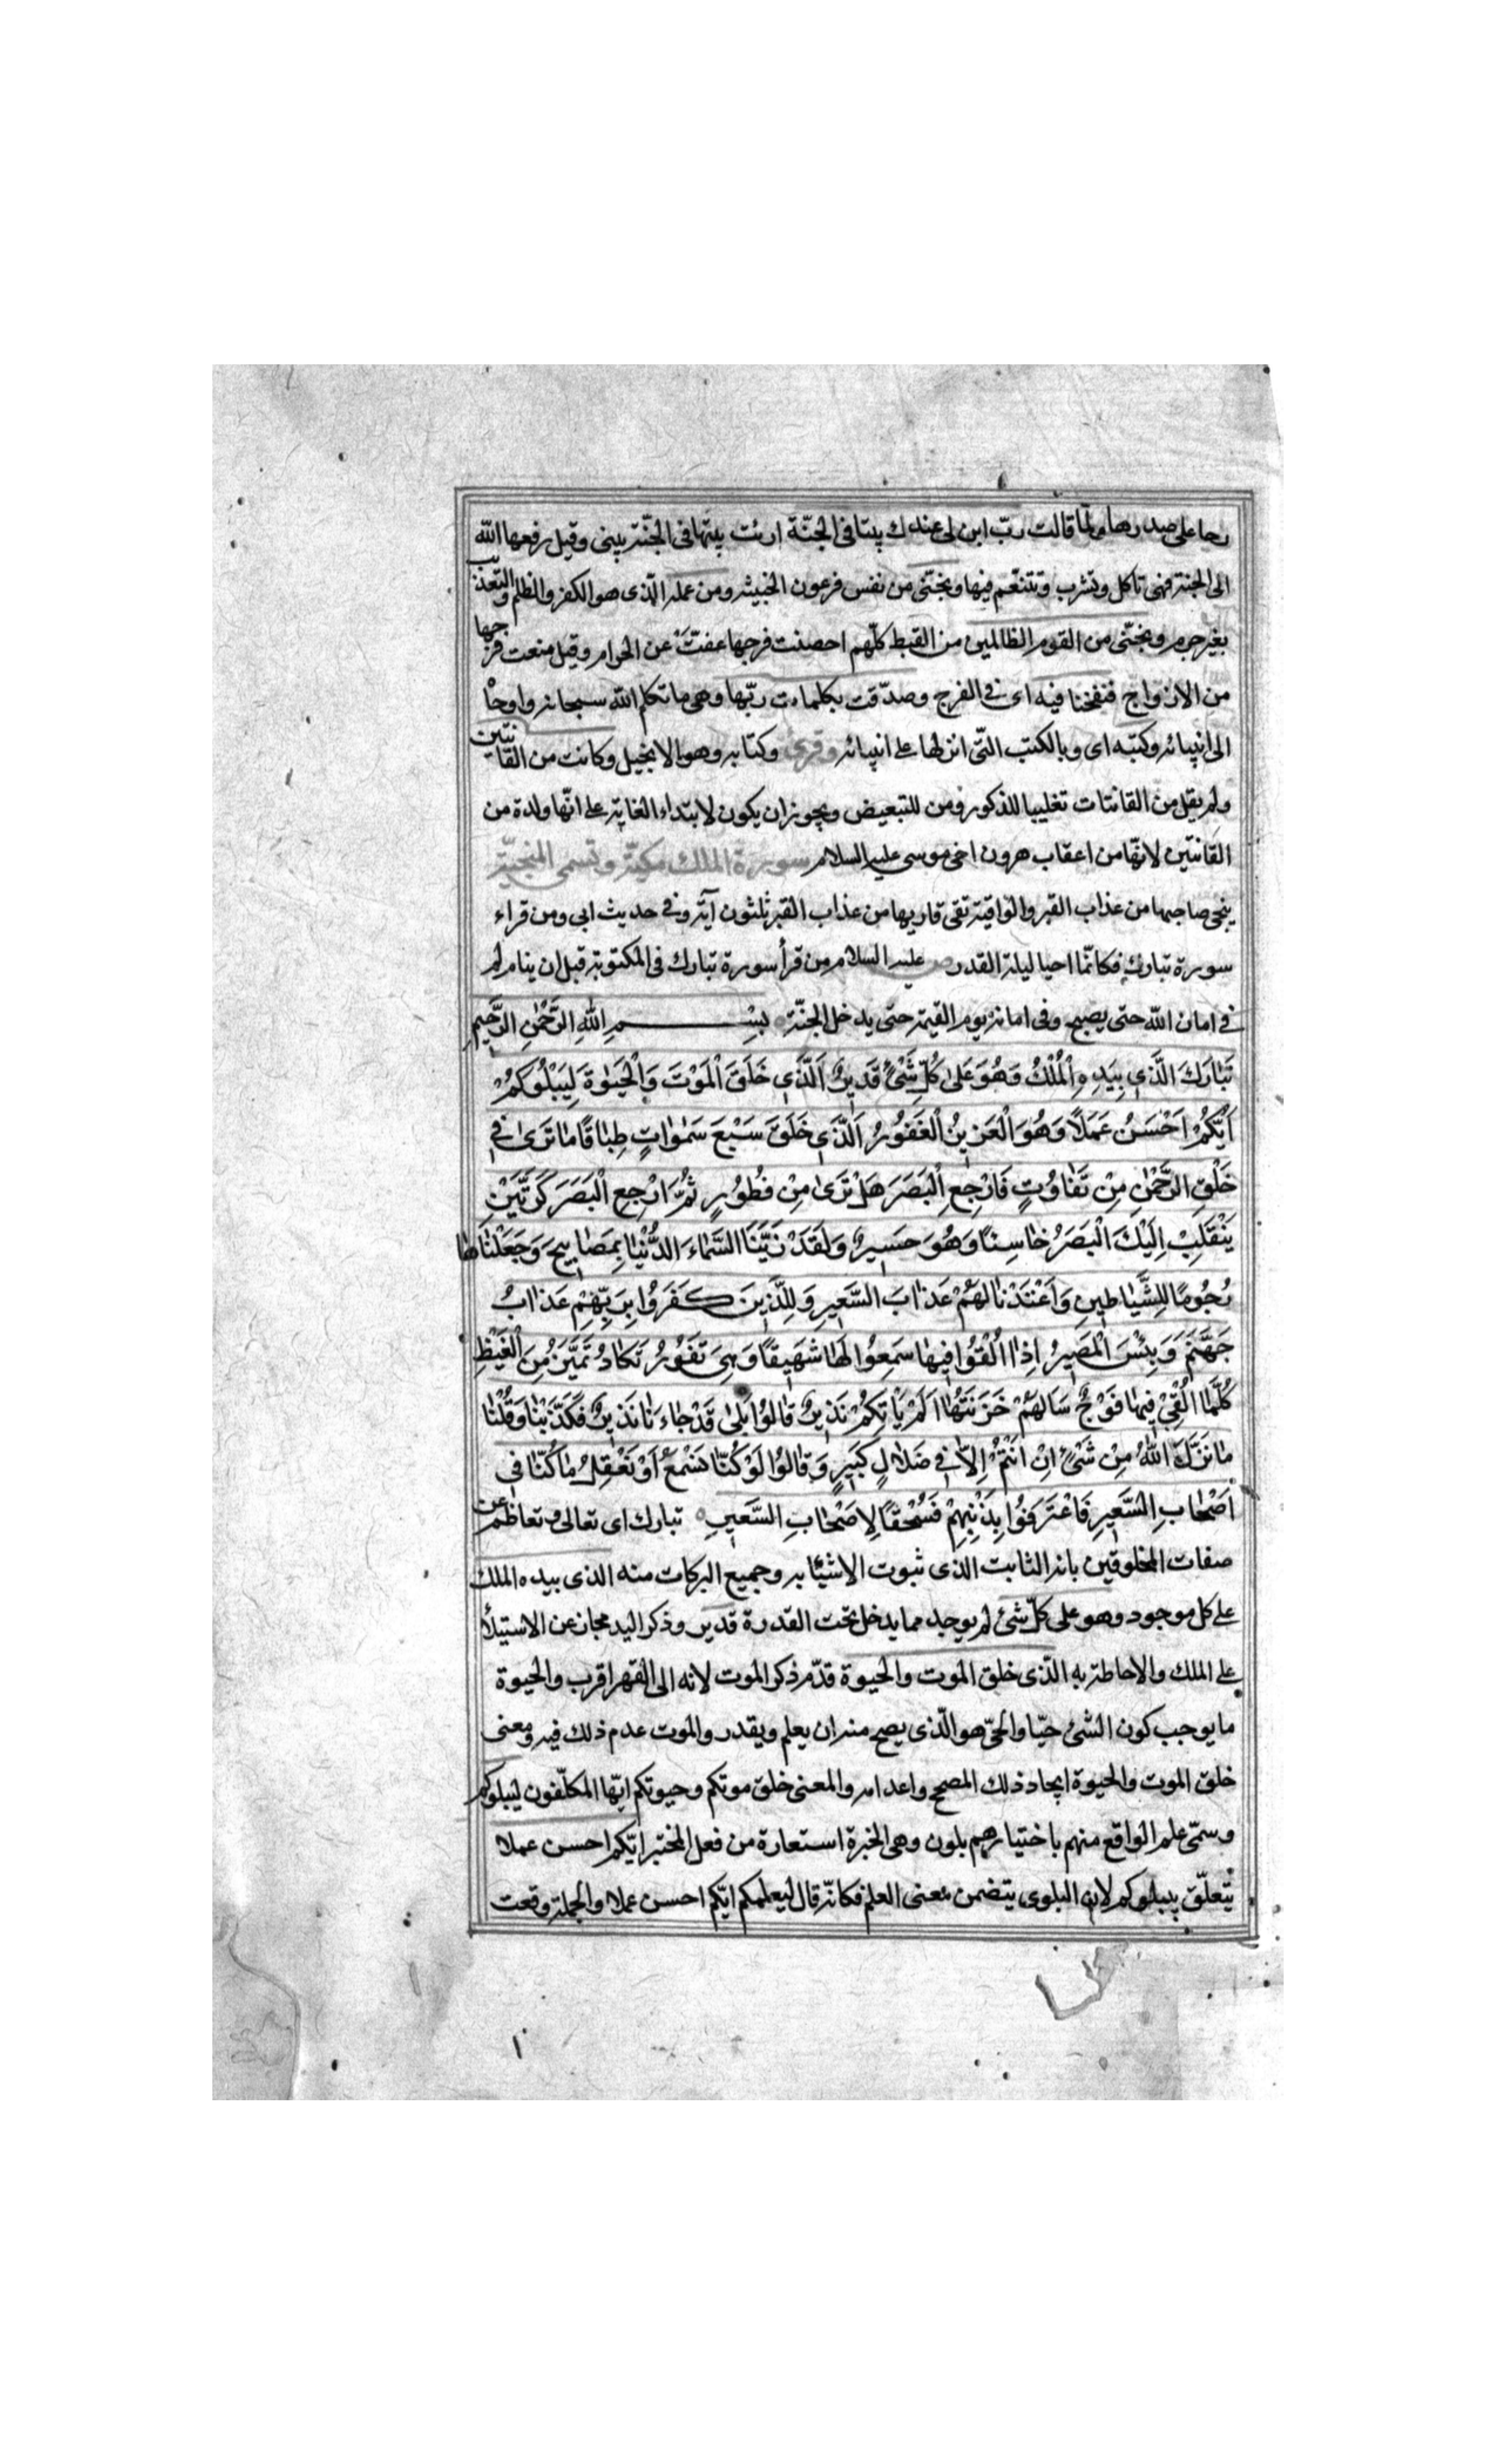 رحا على صدرها ولما قالت ربّ ابن لى عندك بيتا فى الجنّة ارئت بيتها فى الجنّة يبنى وقيل رفعها الله
الى الجنة فهى تاكل وتشرب وتتنعّم فيها ونجّنى من نفس فرعون الخبيثه ومن عمله الّذى هو الكفر والظلم والتعذيب
بغير جرم ونجّنى من القوم الظالمين من القبط كلّهم احصنت فرجها عفّت عن الحرام وقيل منعت فرجها
من الازواج فنفخنا فيه اى فى الفرج وصدّقت بكلمات ربّها وهى ما تكلم الله سبحانه واوحا
الى انبيائه وكتبه اى وبالكتب التّى انزلها على انبيائه وقرئ وكتابه وهو الانجيل وكانت من القانتين
ولم يقل من القانتات تغليبا للذكور ومن للتبعيض ويجوز ان يكون لابتداء الغاية على انّها ولدة من
القانتين لانهّا من اعقاب هرون اخى موسى عليه السلام سورة الملك مكيّة وتسمى المنجيّة
ينجى صاحبها من عذاب القبر والواقية تقى قاريها من عذاب القبر ثلثون آية وفى حديث ابى ومن قراء
سورة تبارك فكانّما احيا ليلة القدر ص عليه السلام من قرأ سورة تبارك فى المكتوبة قبل ان ينام لم
فى امان الله حتى يصبح وفى امانه يوم القيمة حتى يدخل الجنّة بِسْمِ اللهِ الرَّحْمٰنِ الرَّحِيمِ
تَبَارَكَ الَّذِى بِيَدِهِ الْمُلْكُ وَهُوَ عَلىٰ كُلِّ شَىْءٍ قَدِيرٌ اَلَّذِى خَلَقَ الْمَوْتَ وَالْحَيٰوةَ لِيَبْلُوَكُمْ
اَيُّكُمْ اَحْسَنُ عَمَلاً وَهُوَ الْعَزِيزُ الْغَفُورُ اَلَّذِى خَلَقَ سَبْعَ سَمٰوَاتٍ طِبٰاقًا مٰا تَرىٰ فِى
خَلْقِ الرَّحْمٰنِ مِنْ تَفَاوُتٍ فَارْجِعِ الْبَصَرَ هَلْ تَرىٰ مِنْ فُطُورٍ ثُمَّ ارْجِعِ الْبَصَرَ كَرَّتَيْنِ
يَنْقَلِبْ اِلَيْكَ الْبَصَرُ خٰاسِئًا وَهُوَ حَسِيرٌ وَلَقَدْ زَيَّنَّا السَّمٰاءَ الدُّنْيٰا بِمَصٰابِيحَ وَجَعَلْنٰاهٰا
رُجُومًا لِلشَّيٰاطِينِ وَاَعْتَدْنٰا لَهُمْ عَذٰابَ السَّعِيرِ وَلِلَّذِينَ كَفَرُوا بِرَبِّهِمْ عَذٰابُ
جَهَنَّمَ وَبِئْسَ الْمَصِيرُ اِذٰا اُلْقُوا فِيهٰا سَمِعُوا لَهٰا شَهِيقًا وَهِىَ تَفُورُ تَكٰادُ تَمَيَّزُ مِنَ الْغَيْظِ
كُلَّمٰا اُلْقِىَ فِيهٰا فَوْجٌ سَاَلَهُمْ خَزَنَتُهٰا اَلَمْ يَاْتِكُمْ نَذِيرٌ قٰالُوا بَلىٰ قَدْ جٰاءَنٰا نَذِيرٌ فَكَذَّبْنٰا وَقُلْنٰا
مٰا نَزَّلَ اللهُ مِنْ شَىْءٍ اِنْ اَنْتُمْ اِلاّٰ فِى ضَلاٰلٍ كَبِيرٍ وَقٰالُوا لَوْ كُنّٰا نَسْمَعُ اَوْ نَعْقِلُ مٰا كُنّٰا فِى
اَصْحٰابِ السَّعِيرِ فَاعْتَرَفُوا بِذَنْبِهِمْ فَسُحْقًا لِاَصْحٰابِ السَّعِيرِ تبارك اى تعالى وتعاظم عن
صفات المخلوقين بانه الثابت الذى ثبوت الاشيّٓا به وجميع البركات منه الذى بيده الملك
على كل موجود وهو على كلّ شئ لم يوجد مما يدخل تحت القدرة قدير وذكر اليد مجاز عن الاستيلاء
على الملك والاحاطة به الّذى خلق الموت والحيوة قدّم ذكر الموت لانه الى القهر اقرب والحيوة
ما يوجب كون الشئ حيّا والحىّ هو الّذى يصح منه ان يعلم ويقدر والموت عدم ذلك فيه ومعنى
خلق الموت والحيوة ايجاد ذلك المصحح واعدامه والمعنى خلق موتكم وحيوتكم ايّها المكلّفون ليبلوكم
وسمّى علم الواقع منهم باختيارهم بلون وهى الخبرة استعارة من فعل المختبر ايّكم احسن عملا
يتعلّق بيبلوكم لان البلوى يتضمن معنى العلم فكانّه قال ليعلمكم ايّكم احسن عملا والجملة وقعت